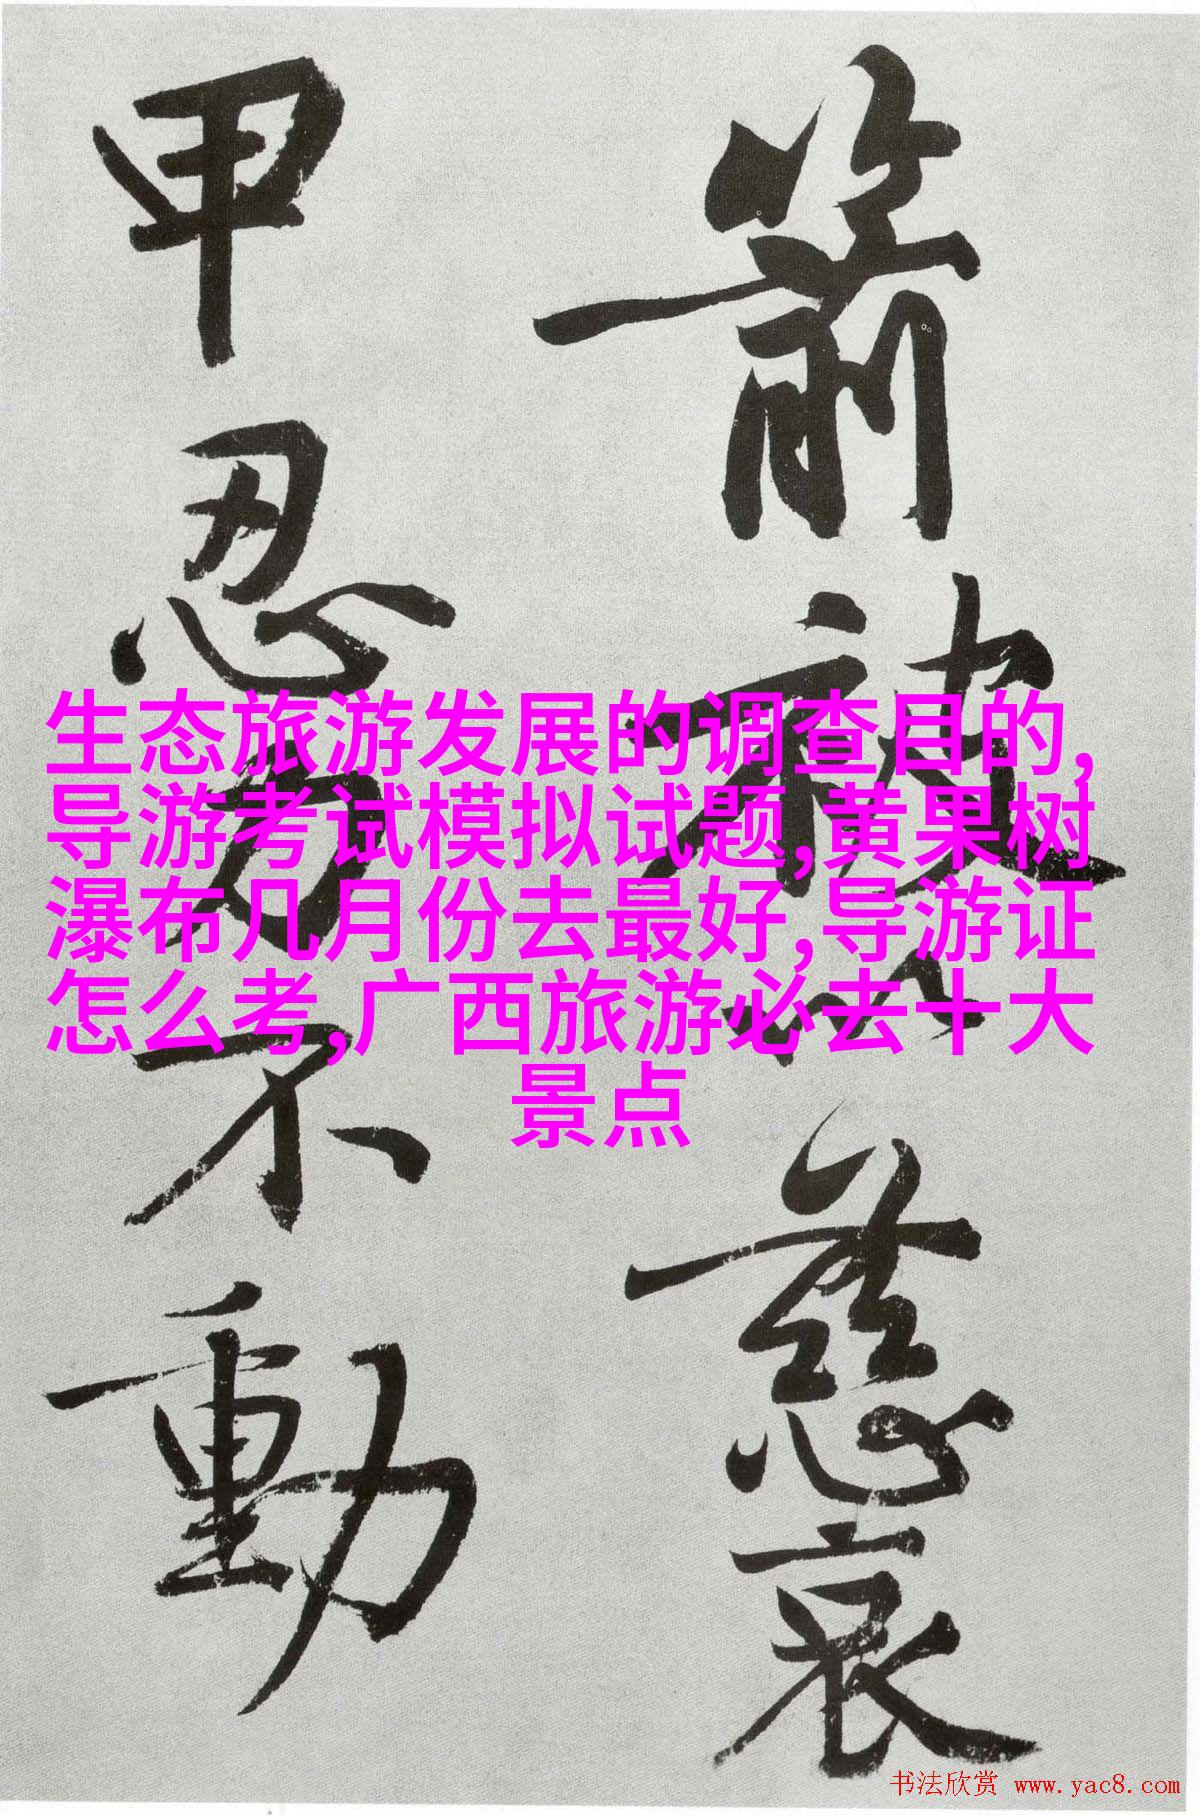 箭被以慈哀
甲忍力不動
生态旅游发展的调查目的,
导游考试模拟试题,黄果树
瀑布几月份去最好,导游证
怎么考,广西旅游必去十大
景点
书法欣赏 www.yac8.com